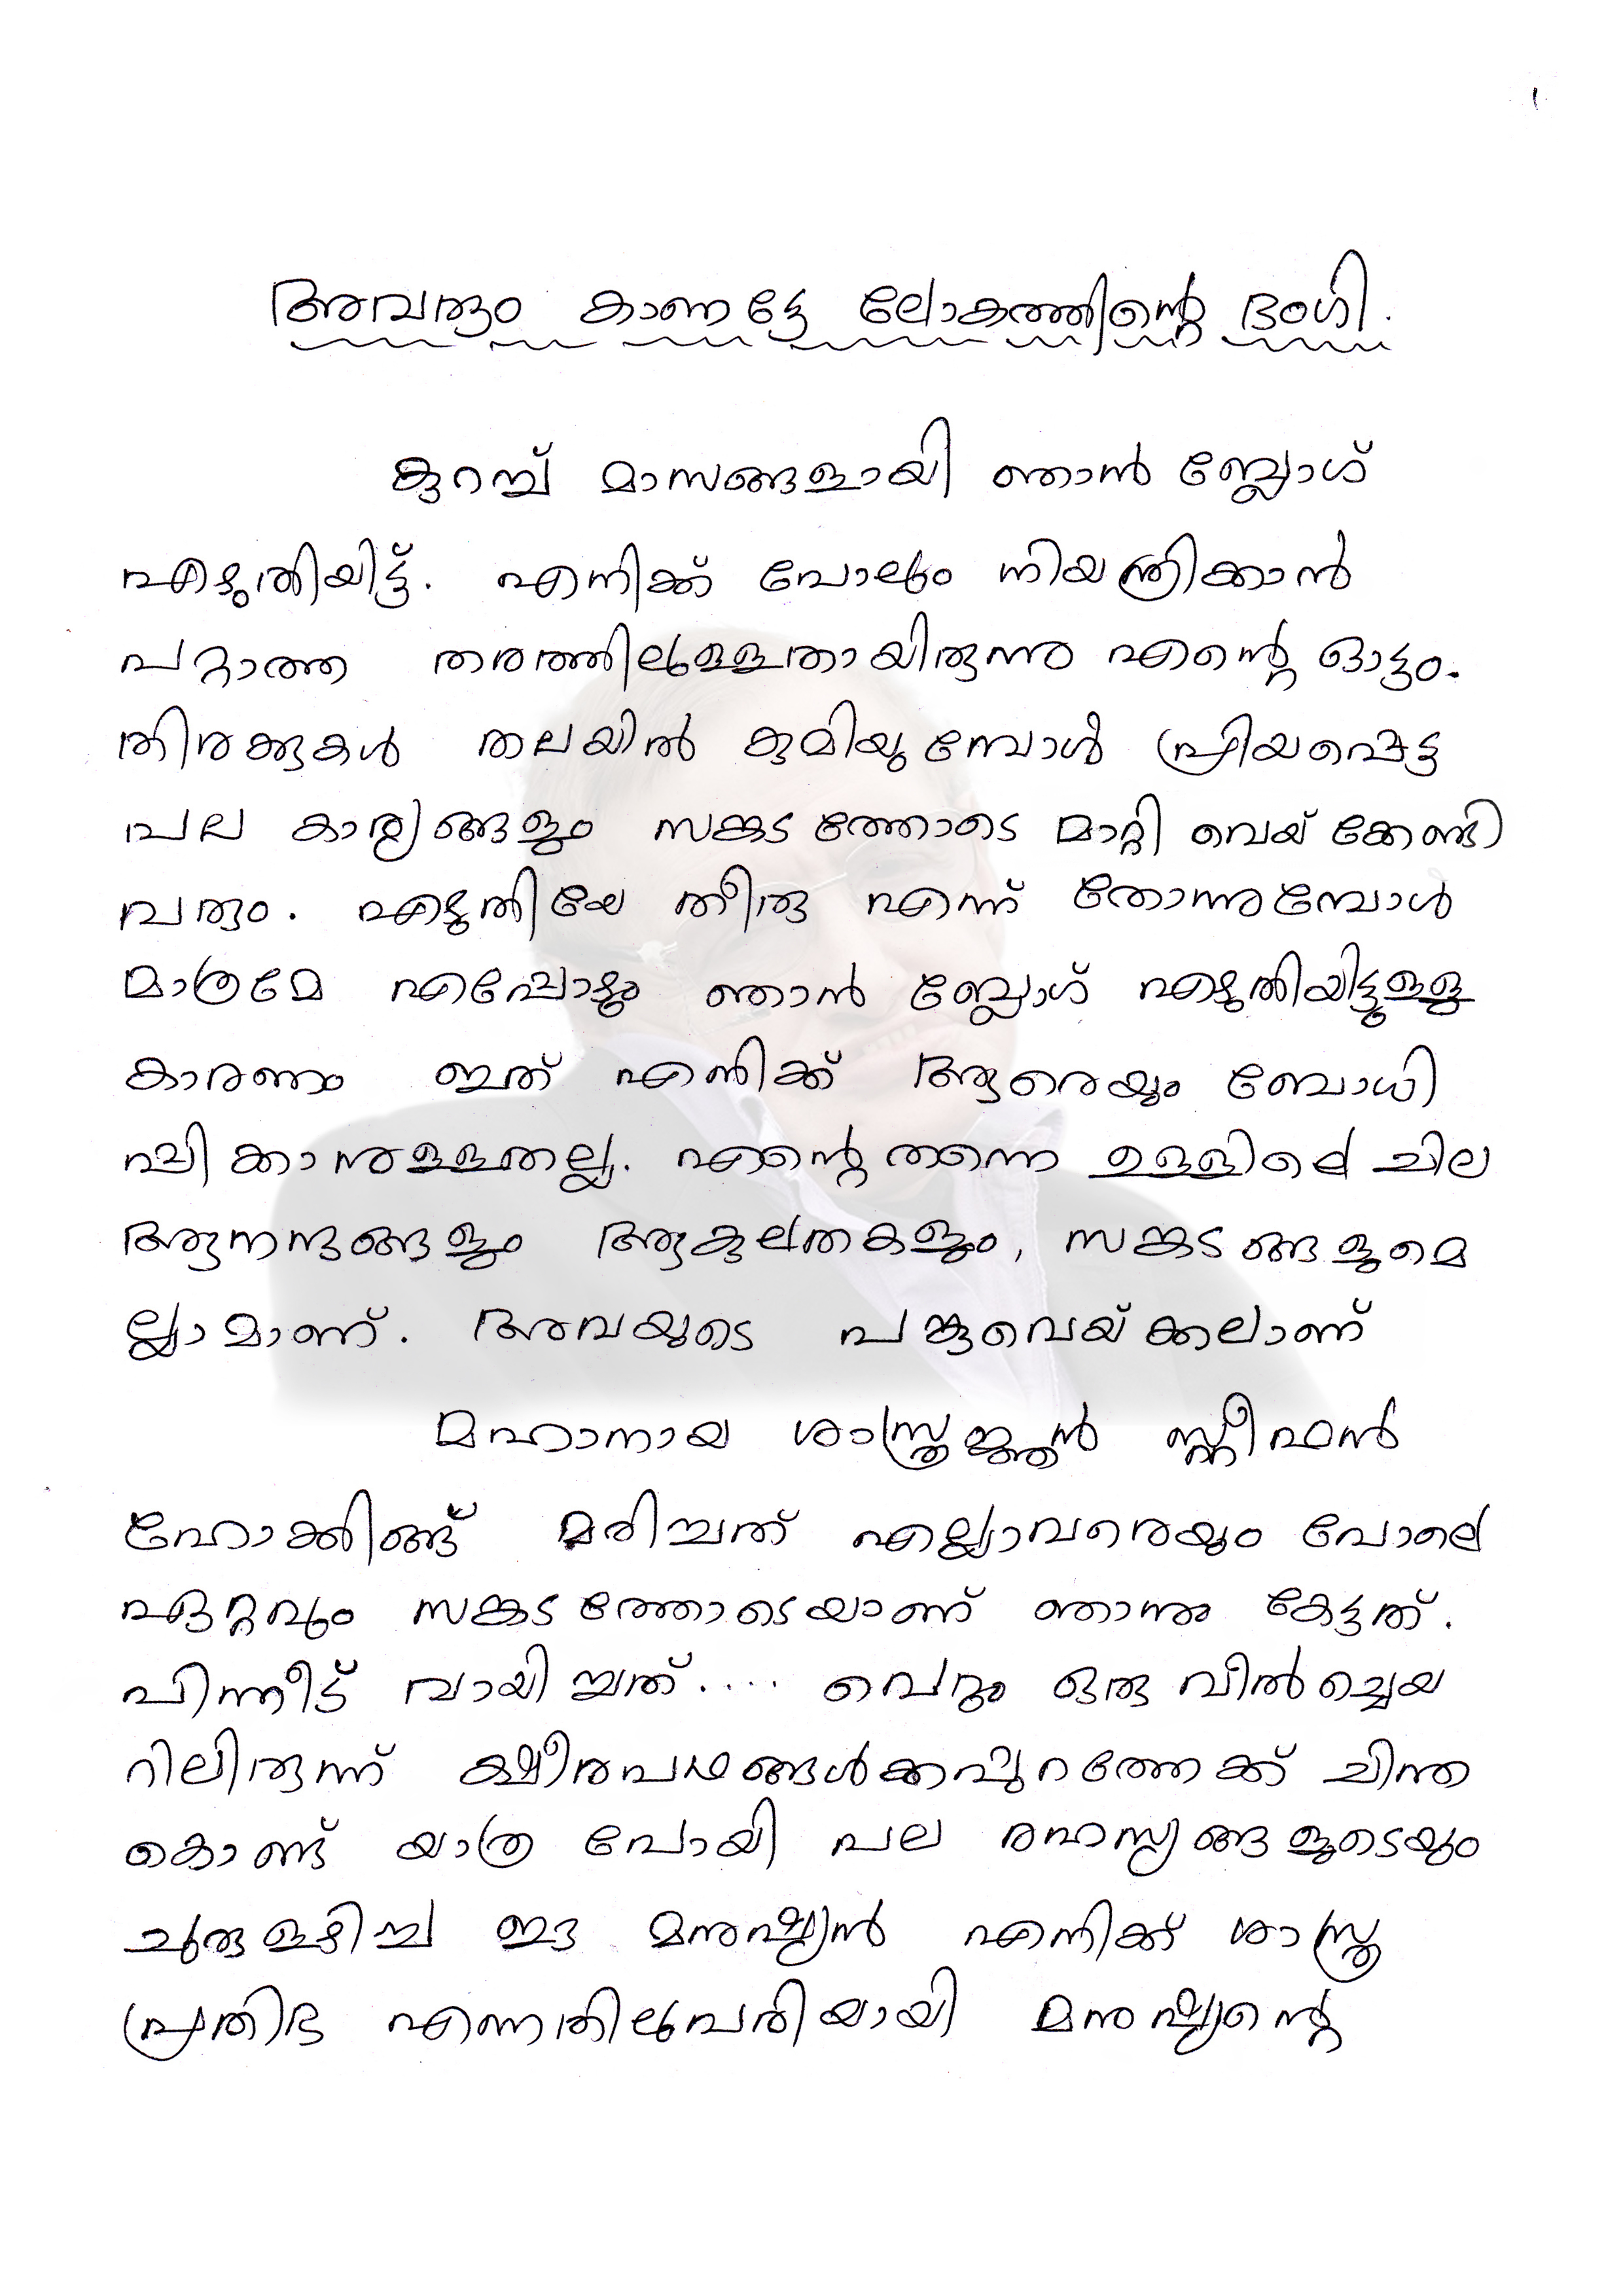 1.
അവരും കാണട്ടേ ലോകത്തിന്റെ ഭംഗി.
കുറച്ച് മാസങ്ങളായി ഞാൻ ബ്ലോഗ്
എഴുതിയിട്ട്. എനിക്ക് പോലും നിയന്ത്രിക്കാൻ
പറ്റാത്ത തരത്തിലുള്ളതായിരുന്നു എന്റെ ഓട്ടം.
തിരക്കുകൾ തലയിൽ കുമിയുമ്പോൾ പ്രിയപ്പെട്ട
പല കാര്യങ്ങളും സങ്കടത്തോടെ മാറ്റി വെയ്ക്കേണ്ടി
വരും. എഴുതിയേ തീരു എന്ന് തോന്നുമ്പോൾ
മാത്രമേ എപ്പോഴും ഞാൻ ബ്ലോഗ് എഴുതിയിട്ടുള്ളു
കാരണം ഇത് എനിക്ക് ആരെയും ബോധി
പ്പിക്കാനുള്ളതല്ല. എന്റെ തന്നെ ഉള്ളിലെ ചില
ആനന്ദങ്ങളും ആകുലതകളും, സങ്കടങ്ങളുമെ
ല്ലാമാണ്. അവയുടെ പങ്കുവെയ്ക്കലാണ്
മഹാനായ ശാസ്ത്രജ്ഞൻ സ്റ്റീഫൻ
ഹോക്കിങ്ങ് മരിച്ചത് എല്ലാവരെയും പോലെ
ഏറ്റവും സങ്കടത്തോടെയാണ് ഞാനും കേട്ടത്.
പിന്നീട് വായിച്ചത്.... വെറും ഒരു വീൽച്ചെയ
റിലിരുന്ന് ക്ഷീരപഥങ്ങൾക്കപ്പുറത്തേക്ക് ചിന്ത
കൊണ്ട് യാത്ര പോയി പല രഹസ്യങ്ങളുടെയും
ചുരുളഴിച്ച ഈ മനുഷ്യൻ എനിക്ക് ശാസ്ത്ര
പ്രതിഭ എന്നതിലുപരിയായി മനുഷ്യന്റെ